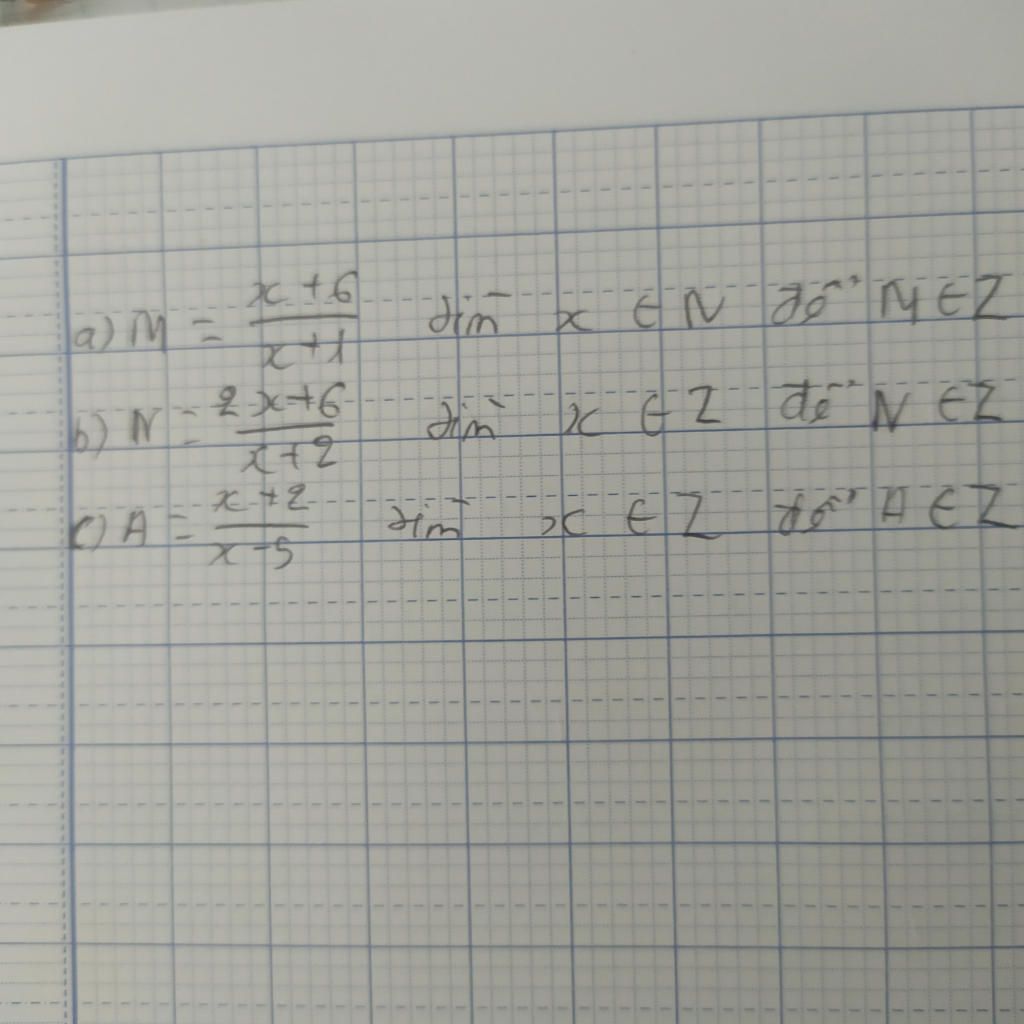 a) M = \frac{x+6}{x+1} tìm x ∈ N để M ∈ Z
b) N = \frac{2x+6}{x+2} tìm x ∈ Z để N ∈ Z
c) A = \frac{x+2}{x-5} tìm x ∈ Z để A ∈ Z